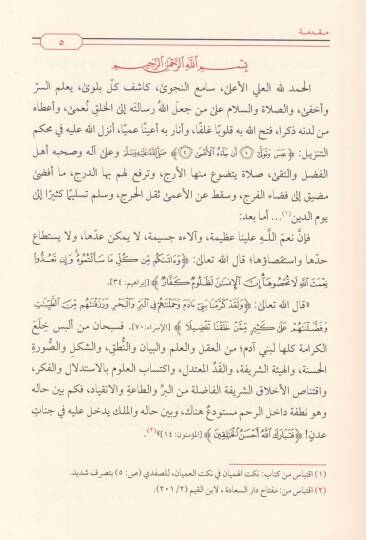 مقدمة
٥
بسم الله الرحمن الرحيم
الحمد لله العلي الأعلى، سامع النجوى، كاشف كلّ بلوى، يعلم السرّ
وأخفى، والصلاة والسلام على من جعل الله رسالته إلى الخلق نُعمى، وأعطاه
من لدنه ذكرا، فتح الله به قلوبًا غلفًا، وأنار به أعينًا عميًا، أنزل الله عليه في محكم
التنزيل: ﴿عَبَسَ وَتَوَلَّىٰٓ ١ أَن جَآءَهُ ٱلْأَعْمَىٰ ٢﴾ ﷺ وعلى آله وصحبه أهل
الفضل والتقى، صلاة يتضوع منها الأرج، وترفع لهم بها الدرج، ما أفضى
مضيق إلى فضاء الفرج، وسقط عن الأعمى ثقل الحرج، وسلم تسليمًا كثيرًا إلى
يوم الدين(١)... أما بعد:
فإنَّ نعمَ اللهِ علينا عظيمة، وآلاءه جسيمة، لا يمكن عدّها، ولا يستطاع
حدّها واستقصاؤها؛ قال الله تعالى: ﴿وَءَاتَىٰكُم مِّن كُلِّ مَا سَأَلْتُمُوهُ وَإِن تَعُدُّوا۟
نِعْمَتَ ٱللَّهِ لَا تُحْصُوهَآ إِنَّ ٱلْإِنسَٰنَ لَظَلُومٌ كَفَّارٌ﴾ [إبراهيم: ٣٤].
«قال الله تعالى: ﴿وَلَقَدْ كَرَّمْنَا بَنِىٓ ءَادَمَ وَحَمَلْنَٰهُمْ فِى ٱلْبَرِّ وَٱلْبَحْرِ وَرَزَقْنَٰهُم مِّنَ ٱلطَّيِّبَٰتِ
وَفَضَّلْنَٰهُمْ عَلَىٰ كَثِيرٍ مِّمَّنْ خَلَقْنَا تَفْضِيلًا﴾ [الإسراء: ٧٠]. فسبحان من ألبس خِلَعَ
الكرامة كلها لبني آدم؛ من العقل والعلم والبيان والنُّطقِ، والشكل والصُّورةِ
الحسنة، والهيئة الشريفة، والقَدِّ المعتدل، واكتساب العلوم بالاستدلال والفكر،
واقتناص الأخلاق الشريفة الفاضلة من البرِّ والطاعةِ والانقياد، فكم بين حاله
وهو نطفة داخل الرحم مستودعٌ هناك، وبين حاله والملك يدخل عليه في جناتِ
عدنٍ! ﴿فَتَبَارَكَ ٱللَّهُ أَحْسَنُ ٱلْخَٰلِقِينَ﴾ [المؤمنون: ١٤]»(٢).
(١) اقتباس من كتاب: نكت الهميان في نكت العميان، للصفدي (ص: ٥) بتصرف شديد.
(٢) اقتباس من: مفتاح دار السعادة، لابن القيم (٢/ ٢٠١).